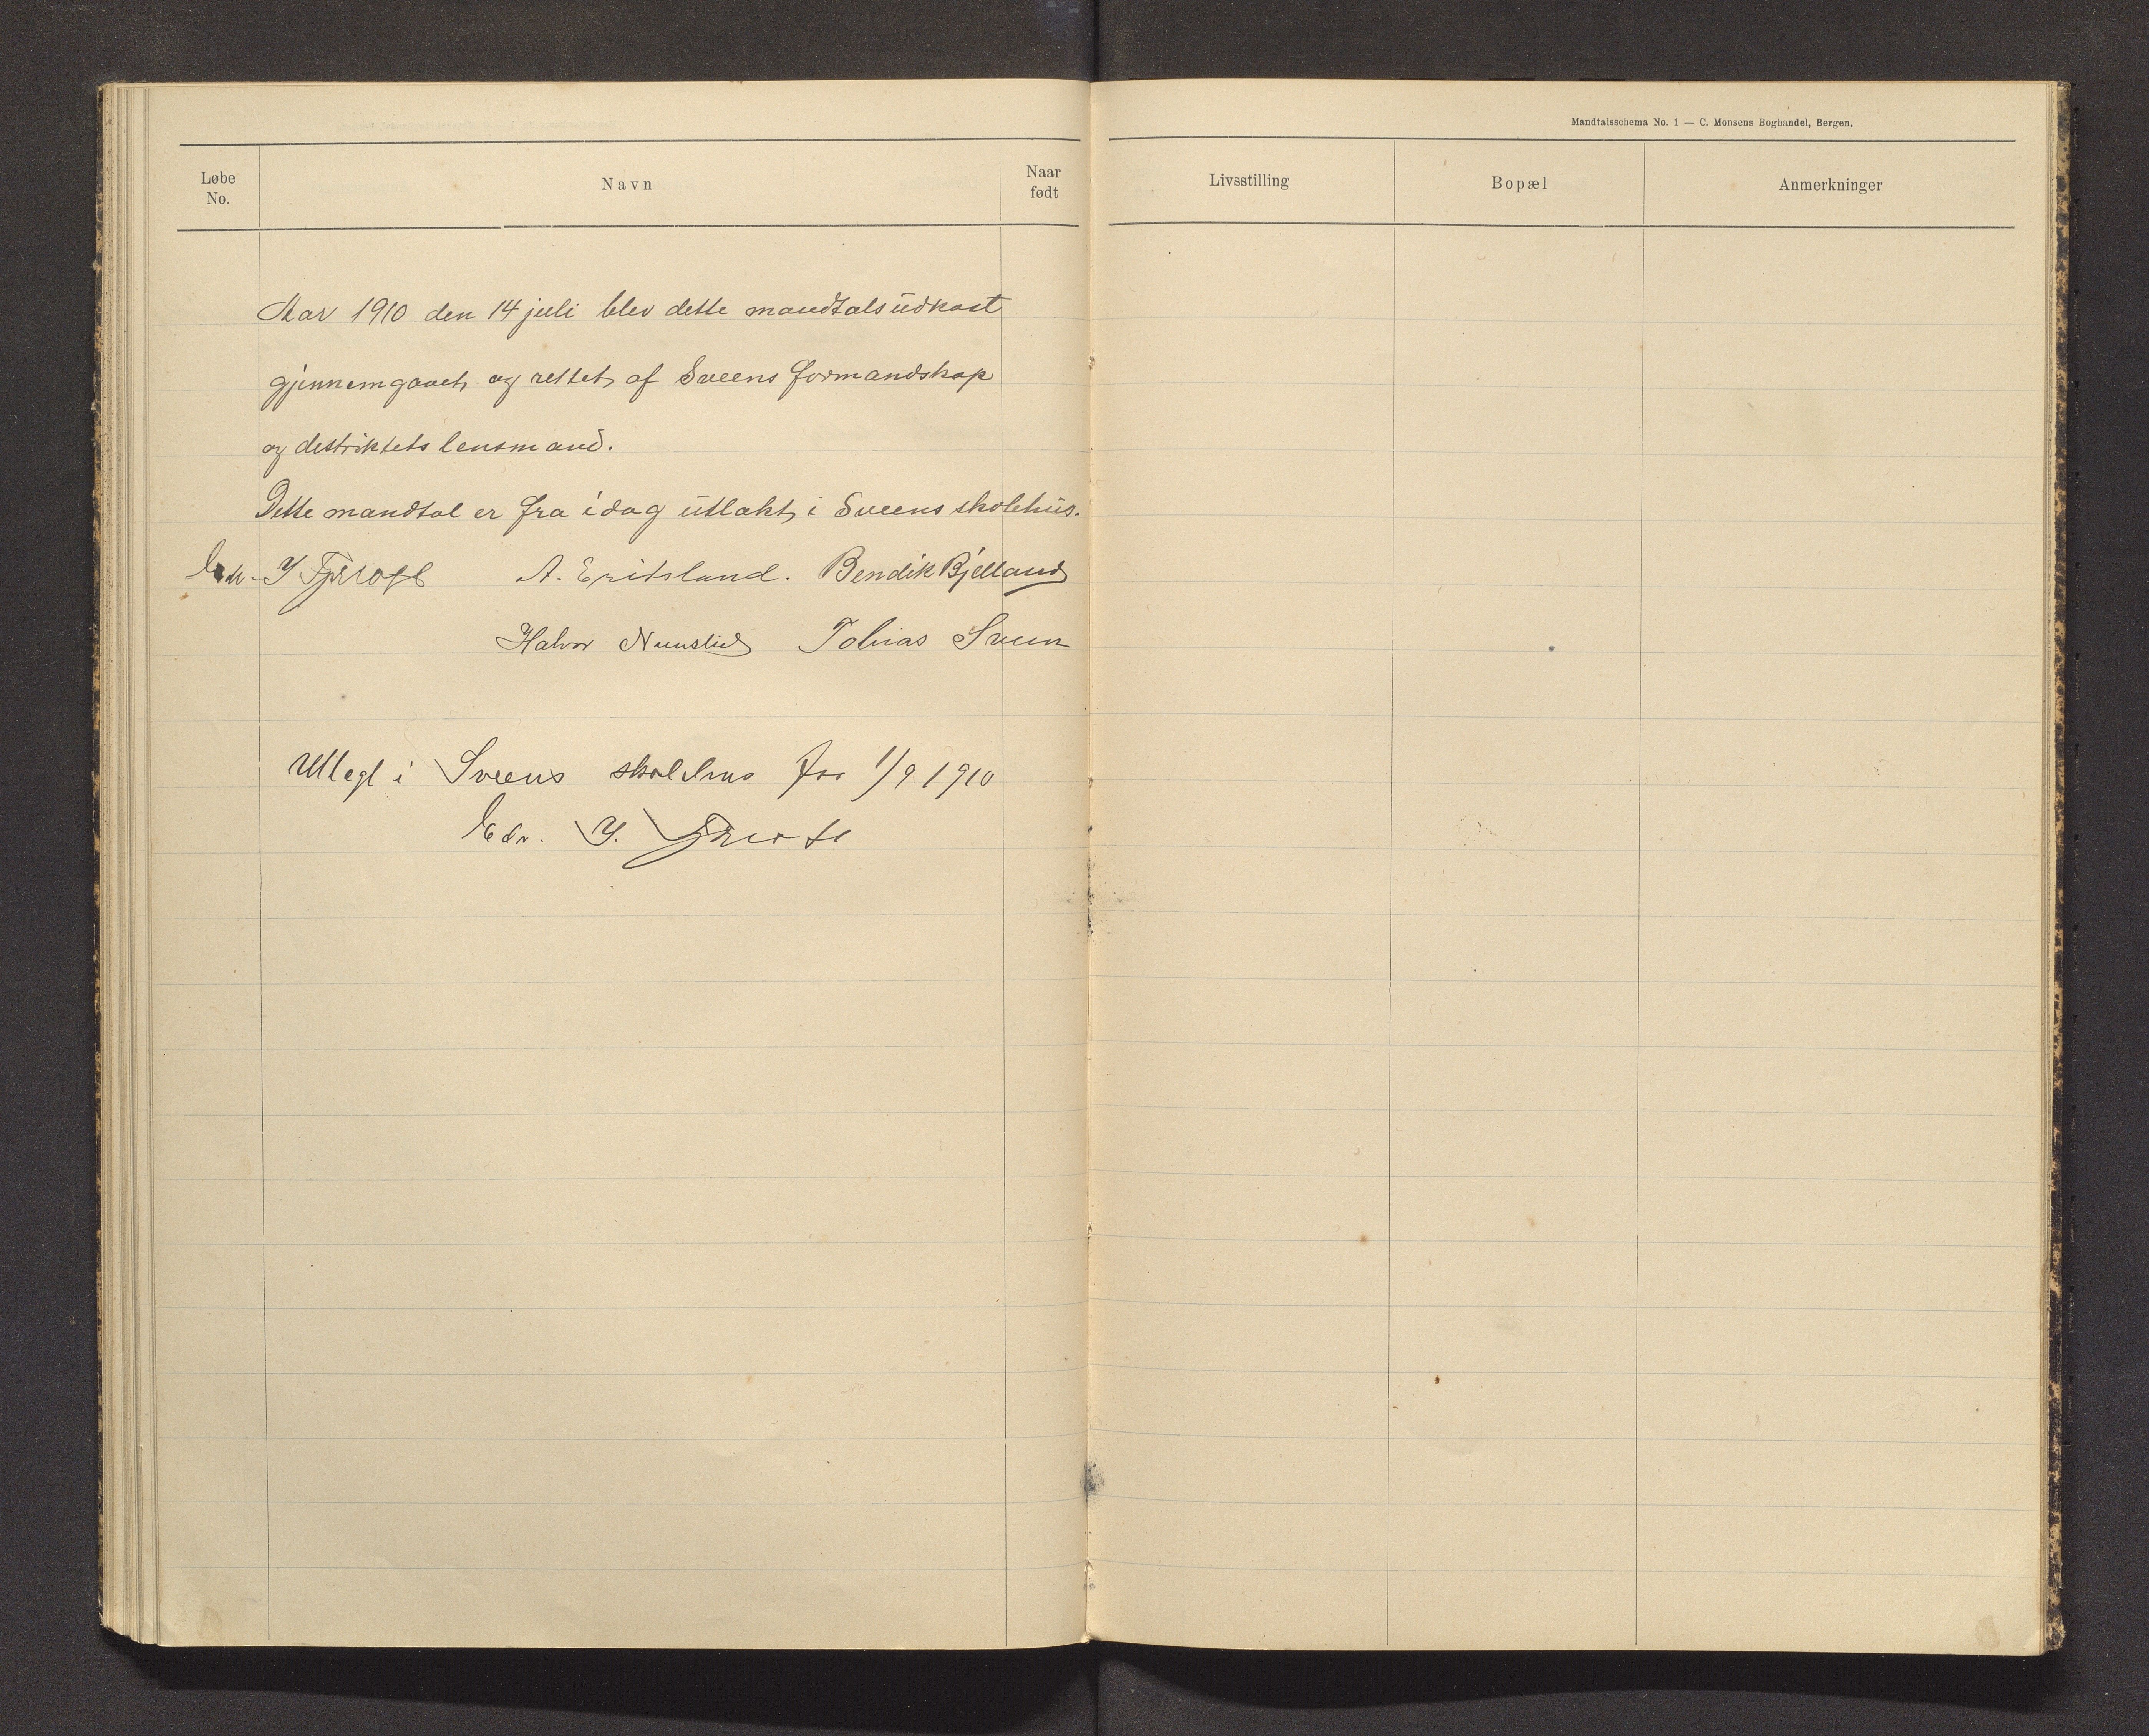 Mandtalsschema No. 1 — C. Monsens Boghandel, Bergen.
Løbe No. Navn Naar født Livsstilling Bopæl Anmerkninger
Aar 1910 den 14 juli blev dette mandtalsudkast
gjennemgaaet og rettet af Sveens formandskap
og destriktets lensmand.
Dette mandtal er fra idag utlakt i Sveens skolehus.
A. Eritsland. Bendik Bjelland
Halvor Tobias Sveen
Utlagt i Sveens skolehus fra 1/9 1910